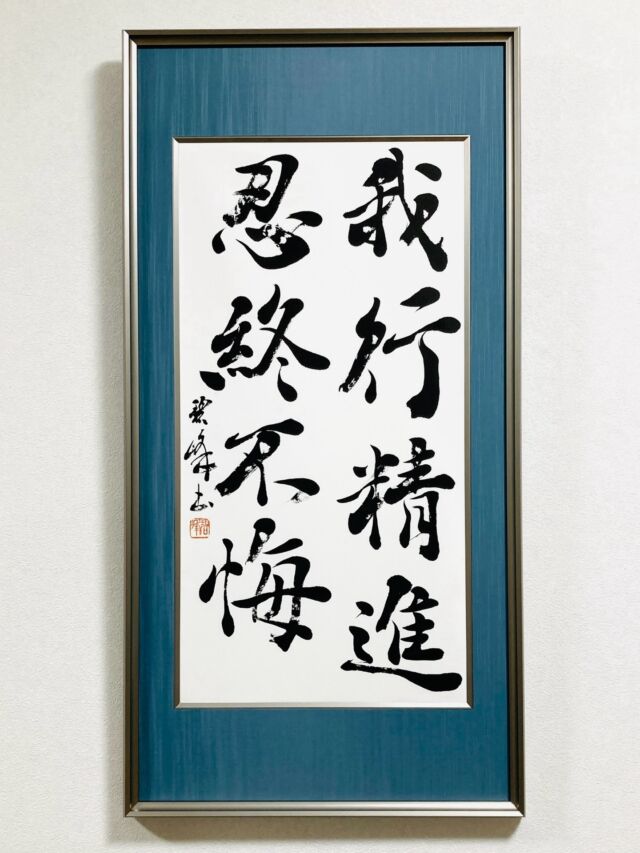 我行精進
忍終不悔
碧峰書